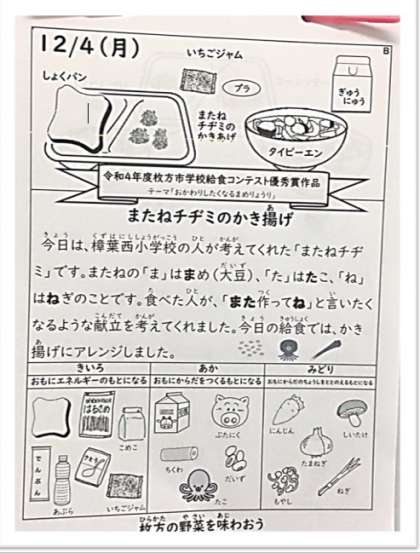 12/4(月)
B
いちごジャム
しょくパン
プラ
ぎゅう
にゅう
またね
チヂミの
かきあげ
タイピーエン
令和4年度枚方市学校給食コンテスト優秀賞作品
テーマ「おかわりしたくなるまめりょうり」
またねチヂミのかき揚げ
今日は、樟葉西小学校の人が考えてくれた「またねチヂ
ミ」です。またねの「ま」はまめ(大豆)、「た」はたこ、「ね」
はねぎのことです。食べた人が、「また作ってね」と言いたく
なるような献立を考えてくれました。今日の給食では、かき
揚げにアレンジしました。
きいろ
おもにエネルギーのもとになる
はるさめ
こめこ
でんぷん
あぶら
さとう
いちごジャム
あか
おもにからだをつくるもとになる
ぶたにく
ちくわ
だいず
たこ
みどり
おもにからだのちょうしをととのえるもとになる
にんじん
しいたけ
たまねぎ
もやし
ねぎ
枚方の野菜を味わおう